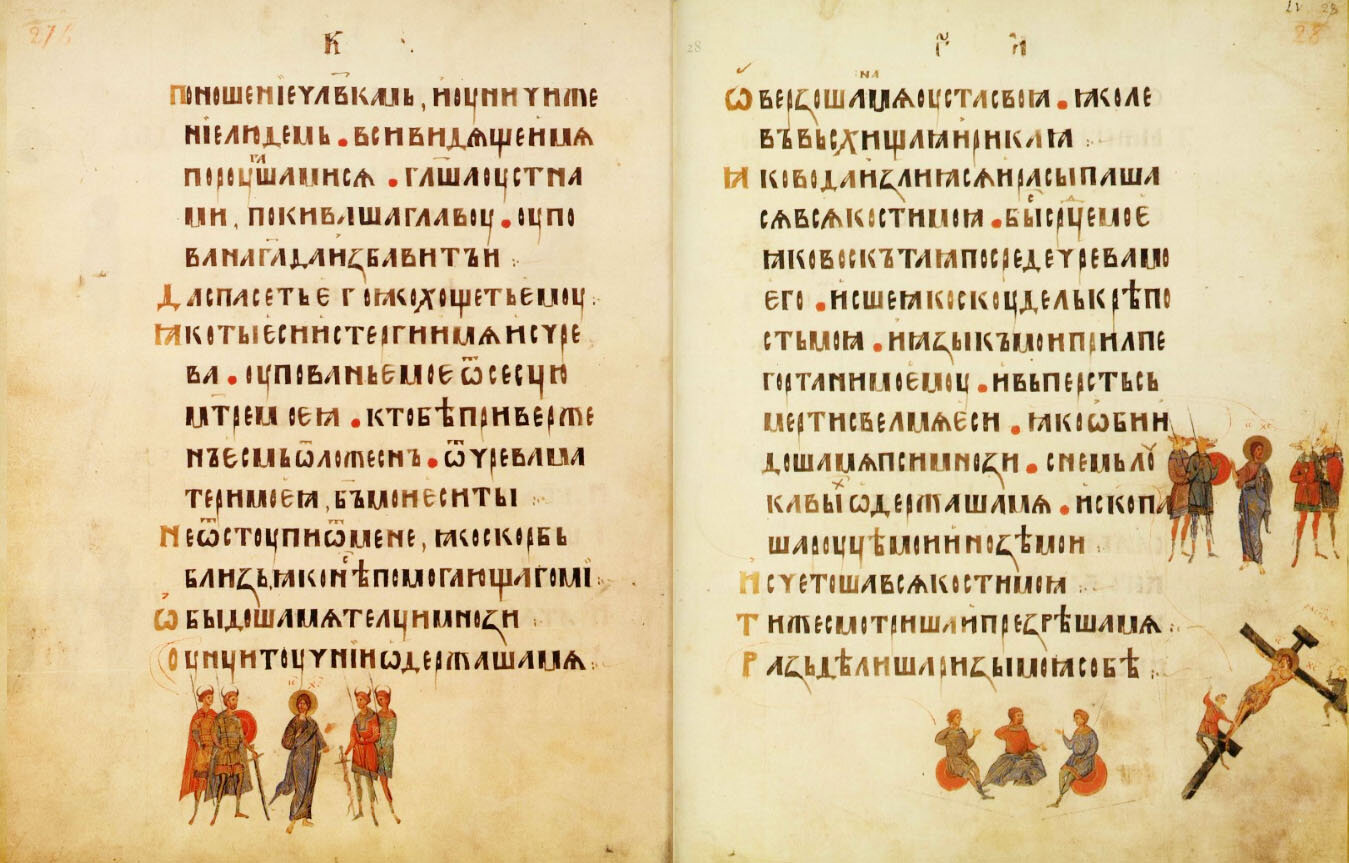 27б
К
поношениечл҃вкмь, иоуничиже
ниелюдемь.всивидѧщеимѧ
пороугашамисѧ.гл҃ашаоустна
ми, покивашаглавоу.оупо
ванаг҃адаизбавитъи
Даспасетьегоꙗкохощетьемоу
ꙗкотыесиистергиимѧисчре
ва.оупованьемоеѿсесцю
мт҃ремоеꙗ.ктобѣприверже
нъесмьѿложеснъ.ѿчревама
теримоеꙗ, бъ҃моиеситы
Неѿступиѿмене, ꙗкоскорбь
близь,ꙗконѣ҇помогающагоми
Ѡбыдошамѧтелцимнози
оунцитоучнииѡдержашамѧ
28
РИ
LV 28
28
Ѡверзошанамѧоустасвоꙗ.ꙗколе
въвьсхищаꙗирикаꙗ
ꙗководаизлиꙗсѧирасыпаша
сѧвсѧкостимоꙗ.бы҇ср҃дцемое
ꙗковоскътаꙗпосредечревамо
его.исшеꙗкоскоудделькрѣпо
стьмоꙗ.иꙗзыкъмоиприлпе
гортанимоемоу.ивъперстьсь
мертисвелмѧеси.ꙗкоѡбии
дошамѧпсимнози.снемьлоу
кавыхѡдержашамѧ.ископа
шароуцѣмоиинозѣмои
Ісчетошавсѧкостимоꙗ
Тижесмотришаипрезрѣшамѧ
Разьдѣлишаризымоꙗсобѣ